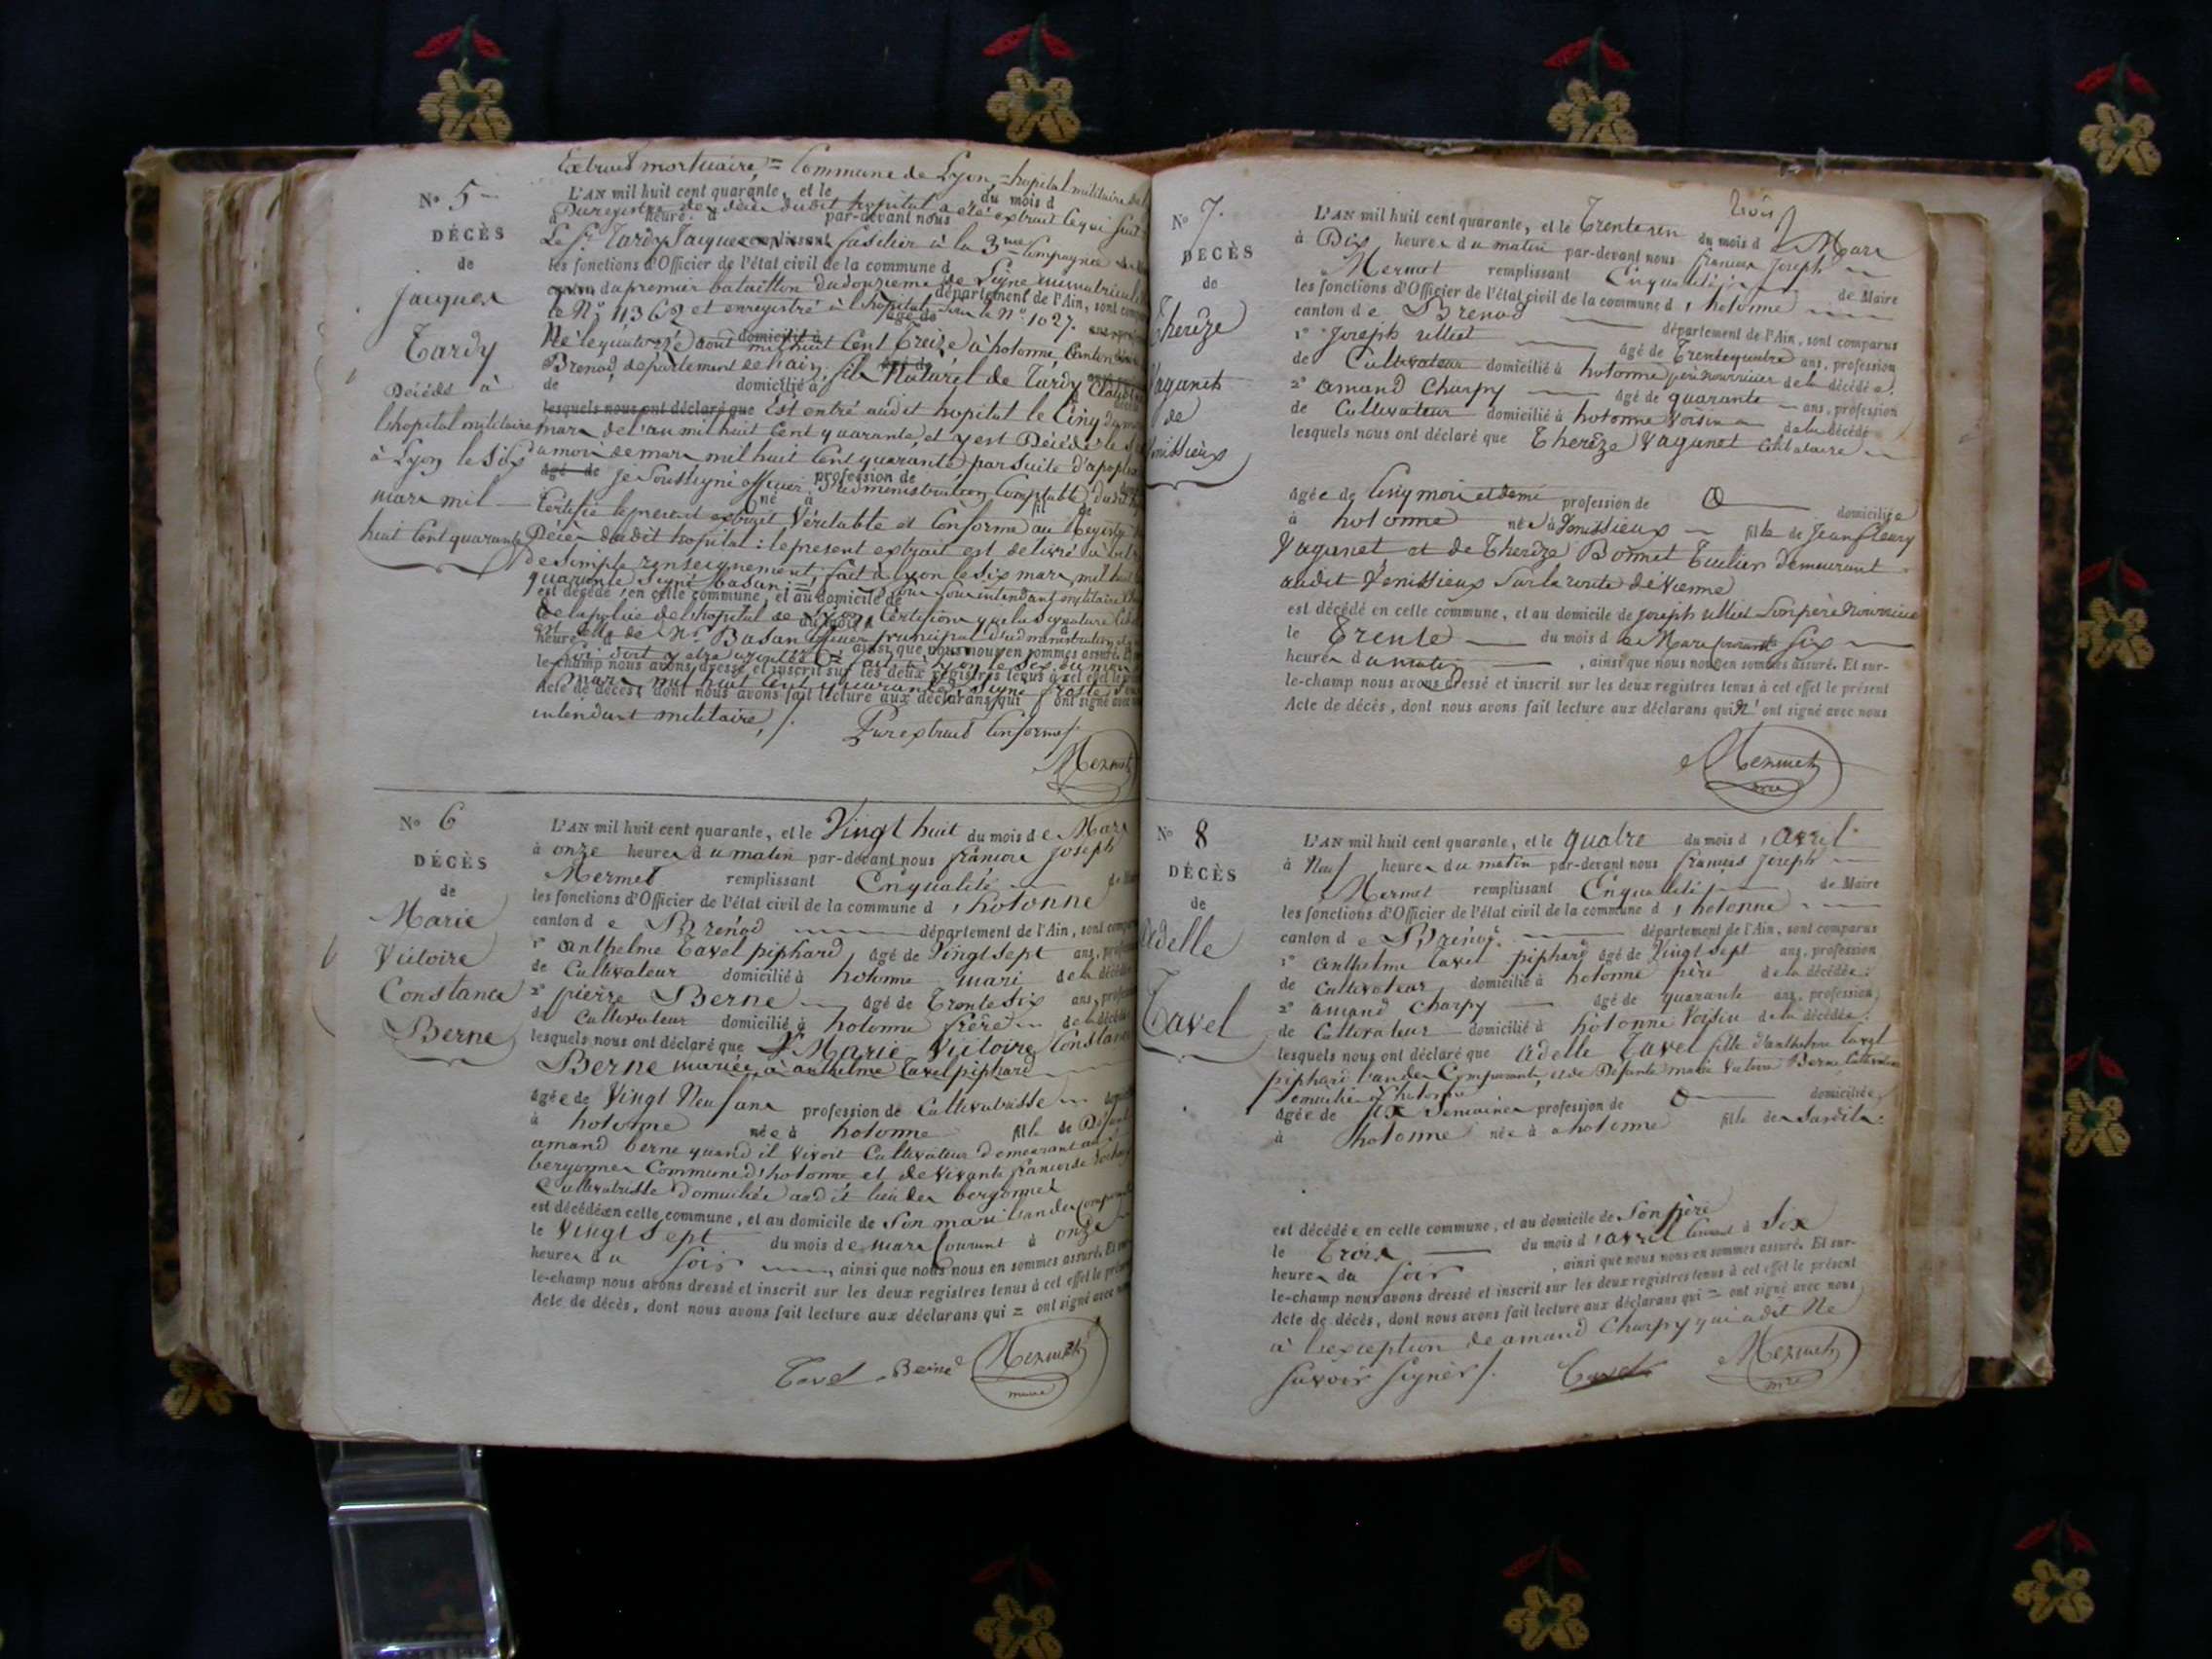 Extrait mortuaire = Commune de Lyon = hopital militaire de
N° 5
L'AN mil huit cent quarante, et le du mois d
Du registre des décès dudit hopital a été extrait ce qui suit
à heure d par-devant nous
DÉCÈS
Le Sr Tardy Jacques fusilier à la 3me Compagnie
remplissant
de
les fonctions d'Officier de l'état civil de la commune d
Jacques
du premier bataillon du douzieme de Ligne immatriculé
département de l'Ain, sont
le N° 11362 et enregistré à l'hopital sous le N° 1027.
âgé de
Tardy
Né le quatorze aout mil huit Cent Treize à hotonne, Canton
domicilié à
Brenod, département de l'ain, fils Naturel de Tardy
de domicilié à
Décédé à
lesquels nous ont déclaré que Est entré audit hopital le Cinq du
l'hopital militaire
mars de l'an mil huit Cent quarante, et y est Décédé le
à Lyon le Six
du mois de mars mil huit Cent quarante par suite d'
âgé de je Soussigné officier d'administration Comptable dudit
profession de
mars mil
né à
Certifie le present extrait Véritable et Conforme au Registre
huit Cent quarante
Décès dudit hopital : le present extrait est delivré à
de Simple renseignement, fait à Lyon le Six mars mil huit
quarante Signé basan : = Nous Sous intendant militaire
est décédé en cette commune, et au domicile de
de la police de l'hopital de Lyon Certifions que la signature
est celle de Mr Basan officier principal d'administration
heure d ainsi que nous nous en sommes assuré.
foi doit y etre ajoutée = fait à Lyon le Six du mois
le-champ nous avons dressé et inscrit sur les deux registres tenus à cet effet le
mars mil huit Cent quarante Signé
Acte de décès, dont nous avons fait lecture aux déclarans qui ont signé avec
intendant militaire
Pur extrait Conforme
Mermet
N° 6
L'AN mil huit cent quarante, et le Vingt huit du mois de Mars
à onze heures du matin par-devant nous françois joseph
DÉCÈS
Mermet remplissant En qualité
de
les fonctions d'Officier de l'état civil de la commune d'hotonne
Marie
canton de Brénod département de l'Ain, sont
Victoire
1° Anthelme Tavel piphard, âgé de Vingt sept ans,
de Cultivateur domicilié à hotonne mari de la décédée
Constance
2° pierre Berne âgé de Trente Six ans,
de Cultivateur domicilié à hotonne frère de la
Berne
lesquels nous ont déclaré que Marie Victoire Constance
Berne mariée à anthelme Tavel piphard
âgée de Vingt Neuf ans profession de Cultivatrisse
à hotonne née à hotonne fille de
amand berne quand il vivoit Cultivateur demeurant
bergonnes Commune d'hotonne et de vivante francoise
Cultivatrisse domiciliée audit lieu des bergonnes
est décédée en cette commune, et au domicile de Son mari l'un des
le Vingt Sept du mois de mars Courant à onze
heures du Soir, ainsi que nous nous en sommes assuré. Et
le-champ nous avons dressé et inscrit sur les deux registres tenus à cet effet le
Acte de décès, dont nous avons fait lecture aux déclarans qui = ont signé avec
Tavel Berne Mermet
maire
trois
N° 7.
L'AN mil huit cent quarante, et le Trente un du mois de Mars
à Dix heures du matin par-devant nous francois Joseph
DÉCÈS
Mermet remplissant En qualité de Maire
de
les fonctions d'Officier de l'état civil de la commune d'hotonne
Therèze
canton de Brenod département de l'Ain, sont comparus
1° Joseph ulliet âgé de Trente quatre ans, profession
Vagunet
de Cultivateur domicilié à hotonne père Nourricier de la décédée.
2° amand Charpy âgé de quarante ans, profession
de
de Cultivateur domicilié à hotonne Voisin de la décédé
lesquels nous ont déclaré que Therèze Vagunet Celibataire
âgée de Cinq mois et demi profession de domiciliée
à hotonne née à Venissieux fille de Jean fleury
Vagunet et de Therèze Bonnet Tuilier demeurant
audit Venissieux Sur la route de vienne
est décédé en cette commune, et au domicile de joseph ulliet Son père Nourricier
le Trente du mois de Mars Courant Six
heures du matin, ainsi que nous nous en sommes assuré. Et sur-
le-champ nous avons dressé et inscrit sur les deux registres tenus à cet effet le présent
Acte de décès, dont nous avons fait lecture aux déclarans qui N'ont signé avec nous
Mermet
mre
N° 8
L'AN mil huit cent quarante, et le quatre du mois d'avril
à Neuf heures du matin par-devant nous françois joseph
DÉCÈS
Mermet remplissant En qualité de Maire
de
les fonctions d'Officier de l'état civil de la commune d'hotonne
Adelle
canton de Brénod département de l'Ain, sont comparus
1° Anthelme Tavel piphard âgé de Vingt sept ans, profession
de Cultivateur domicilié à hotonne père de la décédée.
2° amand Charpy âgé de quarante ans, profession
Tavel
de Cultivateur domicilié à hotonne Voisin de la décédée.
lesquels nous ont déclaré que Adelle Tavel fille d'anthelme Tavel
piphard l'un des Comparants, et de Défunte marie Victoire Berne Cultivateurs
Domiciliés à hotonne
âgée de Six Semaines profession de domiciliée
à hotonne née à hotonne fille des Susdits.
est décédée en cette commune, et au domicile de Son père
le Trois du mois d'avril Courant à Six
heures du Soir, ainsi que nous nous en sommes assuré. Et sur-
le-champ nous avons dressé et inscrit sur les deux registres tenus à cet effet le présent
Acte de décès, dont nous avons fait lecture aux déclarans qui = ont signé avec nous
à l'exception de amand Charpy qui a dit Ne
Savoir Signer.
Tavel Mermet
mre